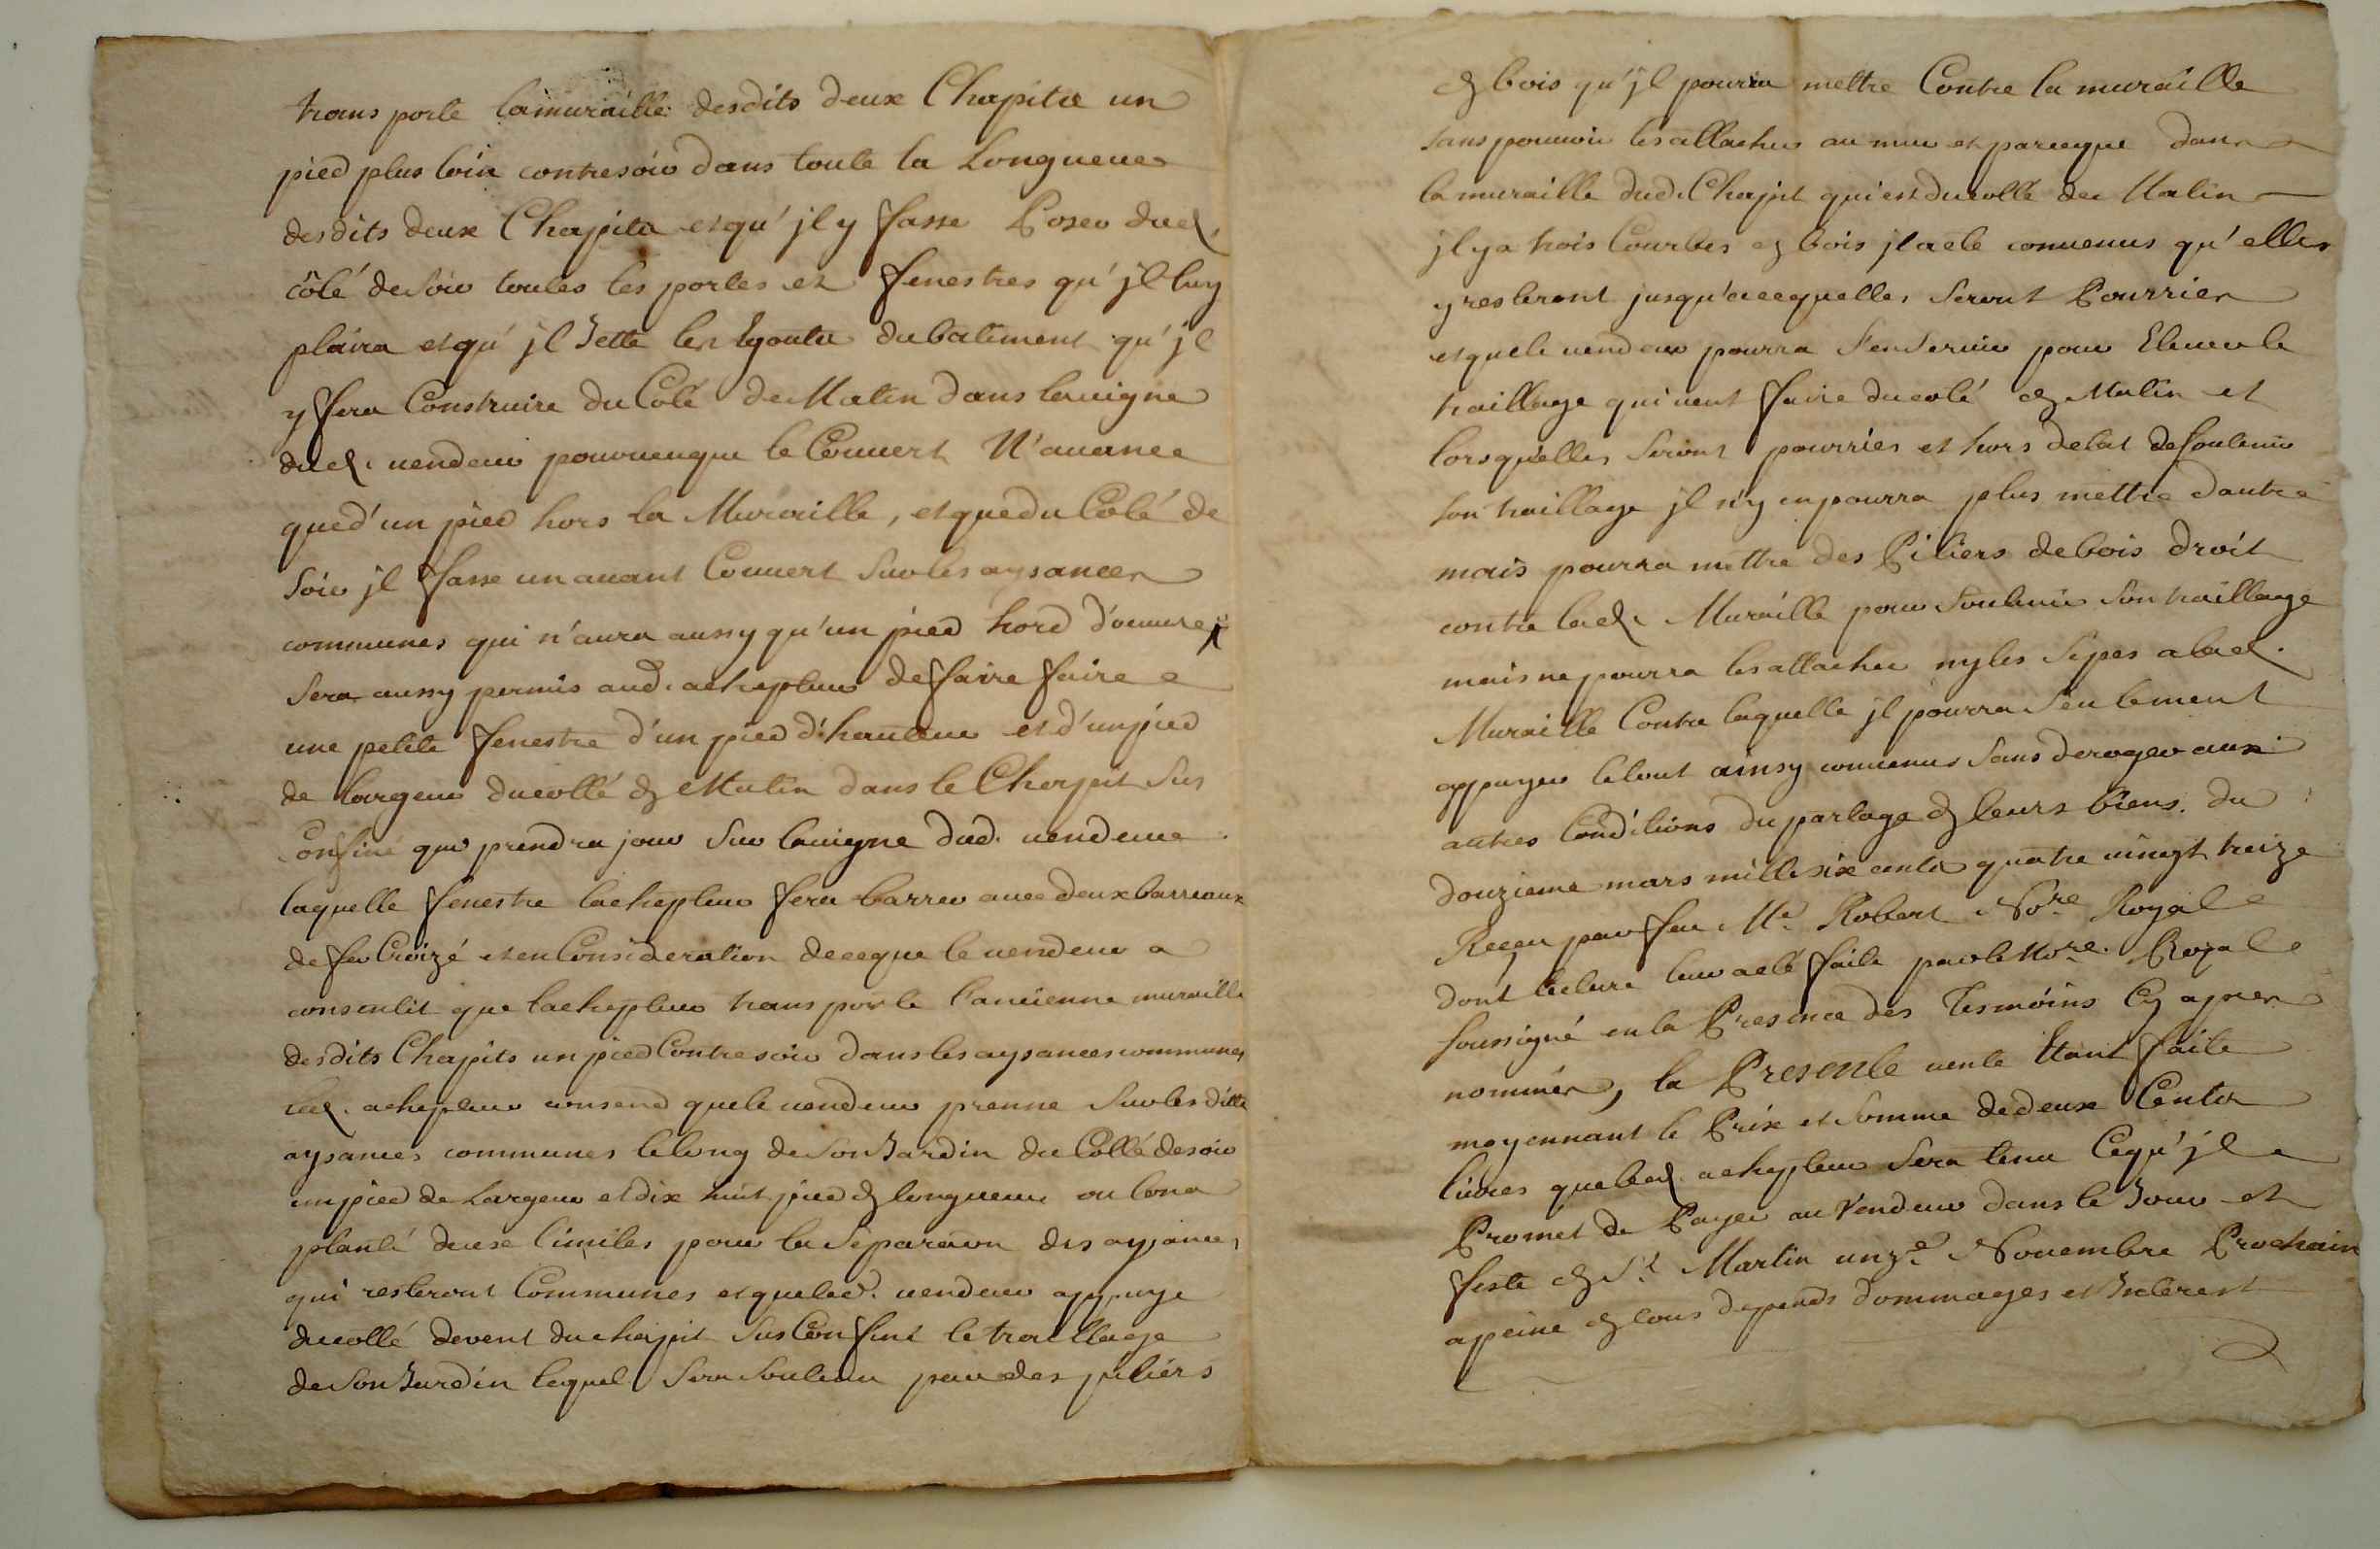 transporte lamuraille desdits deux Chapits un
pied plus loin contresoir dans toute la Longueur
desdits deux Chapits etqu'jl y fasse Poser dud.
côté desoir toutes les portes et fenestres qu'jl luy
plaira etqu'jl Jette les Egouts dubatiment qu'jl
y fera Construire du Coté de Matin dans lavigne
dud. vendeur pourveuque le Couvert N'avance
qued'un pied hors la Muraille, etquedu Coté de
Soir jl fasse un avant Couvert Surles aysances
communes qui n'aura aussy qu'un pied hord d'oeuvre
Sera aussy permis aud. achepteur defaire faire
une petite fenestre d'un pied d'hauteur et d'unpied
de largeur ducotté de Matin dans le Chapit Sus
Confiné qui prendra jour Sur lavigne dud. vendeur
laquelle fenestre lachepteur fera barrer avec deux barreaux
de fer Croizé et en Consideration deceque le vendeur a
consentit que lachepteur transporte l'ancienne muraille
desdits Chapits un pied Contresoir dans les aysances communes
led. achepteur consend quele vendeur prenne Surles ditte
aysances communes lelong de Son Jardin du Cotté desoir
un pied de Largeur et dix huit pied de longueur ou lon a
planté deux limites pour la Séparaon des aysances
qui resteront Communes et queled. vendeur appuye
ducotté devent du chapit Sus Confint le traillage
de Son Jardin lequel Sera Soutenu par des piliers
de bois qu'jl pourra mettre Contre la muraille
sans pouvoir les attacher au mur et parceque dans
la muraille dud. Chapit qui est ducotté de Matin
jl y a trois Courbes de bois jl a eté convenus qu'elles
y resteront jusqu'aceque elles Seront Pourries
et quele vendeur pourra S'en Servir pour Elever le
traillage qui veut faire ducoté de Matin et
lorsqu'elles Seront pourries et hors detat de Soutenir
son traillage jl n'y en pourra plus mettre dautre
mais pourra mettre des Piliers de bois droit
contre lad. Muraille pour Soutenir Son traillage
mais ne pourra les attacher ny les Sepes a lad.
Muraille Contre laquelle jl pourra Seulement
appuyer letout ainsy convenus Sans deroger aux
autres Conditions du partage de leurs biens. du
douzieme mars mille six cents quatre vingt treize
Reçeu par feu Me. Robert Nore Royal
dont lecture leur aeté faite par le Nore. Royal
soussigné en la Presence des Tesmoins Cy apres
nommés, la Presente vente Etant faite
moyennant le Prix et Somme de deux Cents
livres queled. achepteur Sera tenu Cequ'jl
Promet de Payer au Vendeur dans le Jour et
feste de St Martin unze. Novembre Prochain
apeine de tous depends dommages et Interest